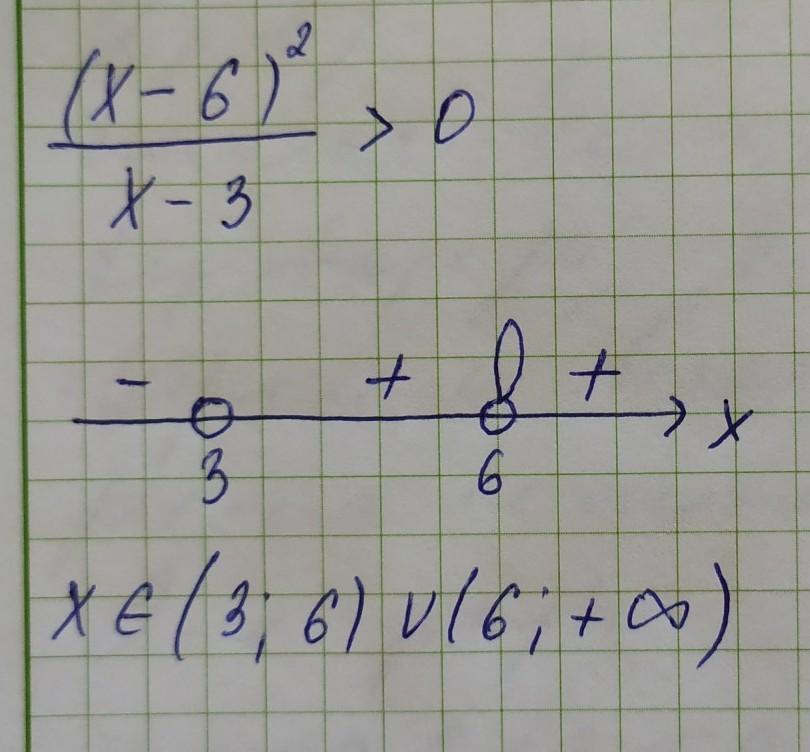 (x-6)²
x-3
> 0
- + +
3 6 x
x∈(3; 6)∪(6; +∞)